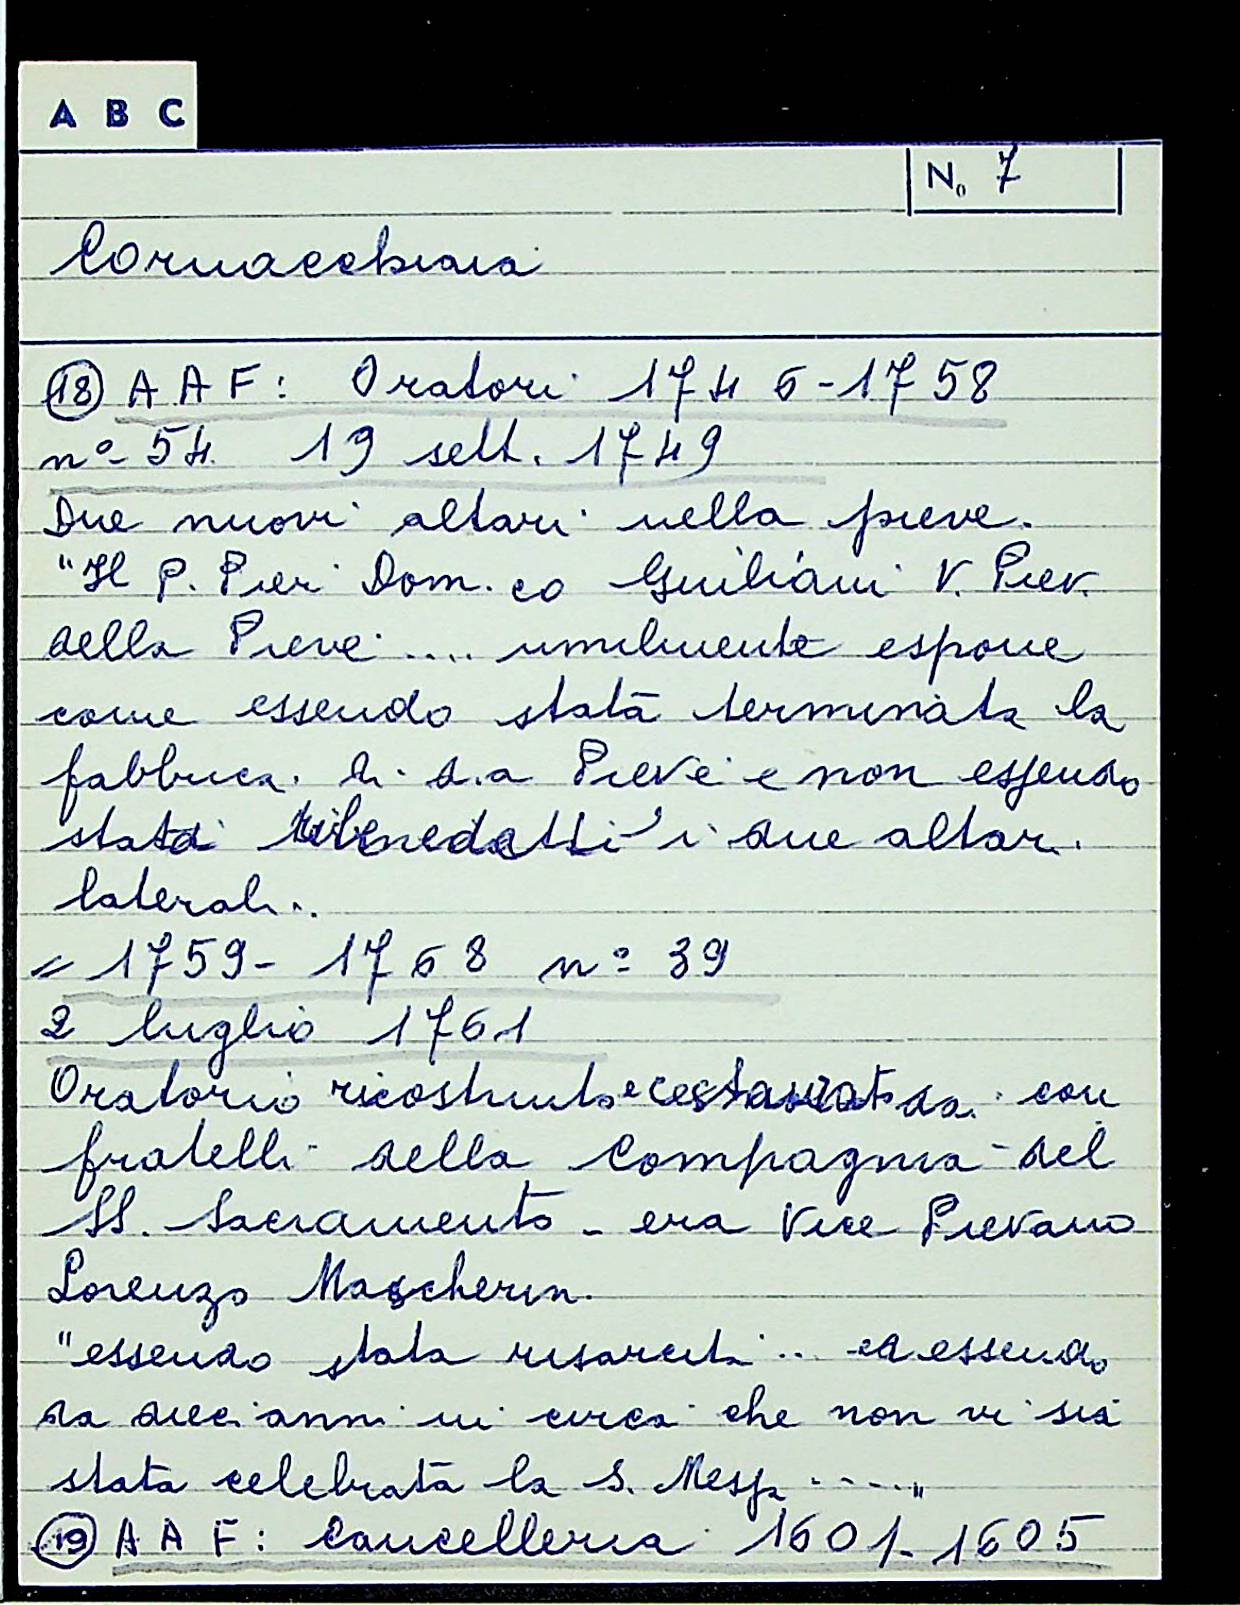 A B C
No 7
Cornacchiaia
18 A A F: Oratori 1746-1758
n° 54 19 sett. 1749
Due nuovi altari nella pieve.
"Il P. Pier Dom.co Giuliani V. Piev.
della Pieve .... umilmente espone
come essendo stata terminata la
fabbrica di d.a Pieve e non essendo
stati ribenedetti i due altari
laterali..
" 1759-1768 n° 39
2 luglio 1761
Oratorio ricostruito e restaurato da con
fratelli della Compagnia del
SS. Sacramento - era Vice Pievano
Lorenzo Mascherin.
"essendo stata risarcita .. ed essendo
da dieci anni in circa che non vi sia
stata celebrata la S. Messa ....."
19 A A F: Cancelleria 1601-1605